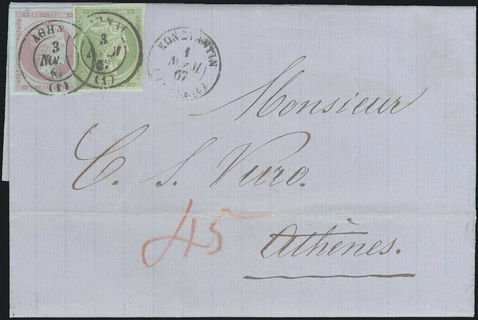 ΑΘΗΝ
3
ΝΟΕ
(1)
3
67
(1)
ΚΩΝΣΤΑΝΤΙΝ
1
67
Monsieur
C. S. Vuro.
45
Athènes.